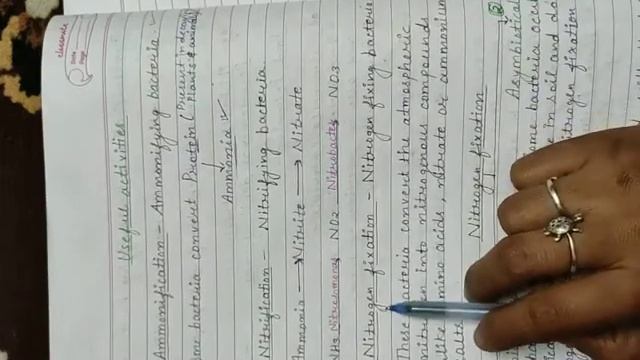 classmate
Date
Page
Useful activities
Ammonification - Ammonifying bacteria
some bacteria convert Protein (Present in decaying Plants & animals)
Ammonia
Nitrification - Nitrifying bacteria
Ammonia → Nitrite → Nitrate
NH3 Nitrosomonas NO2 Nitrobacter NO3
Nitrogen fixation - Nitrogen fixing bacteria
These bacteria convert the atmospheric
nitrogen into nitrogenous compounds
like amino acids, nitrate or ammonium
Nitrogen fixation
Asymbiotical
some bacteria
in soil and do
nitrogen fixation